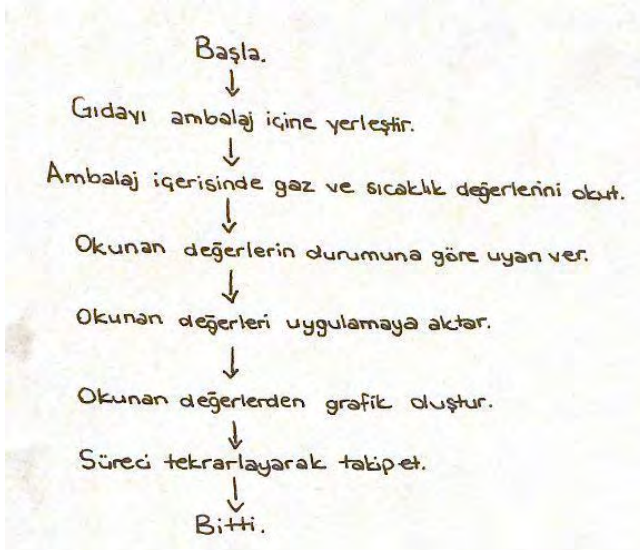 Başla.
Gıdayı ambalaj içine yerleştir.
Ambalaj içerisinde gaz ve sıcaklık değerlerini okut.
Okunan değerlerin durumuna göre uyarı ver.
Okunan değerleri uygulamaya aktar.
Okunan değerlerden grafik oluştur.
Süreci tekrarlayarak takip et.
Bitti.